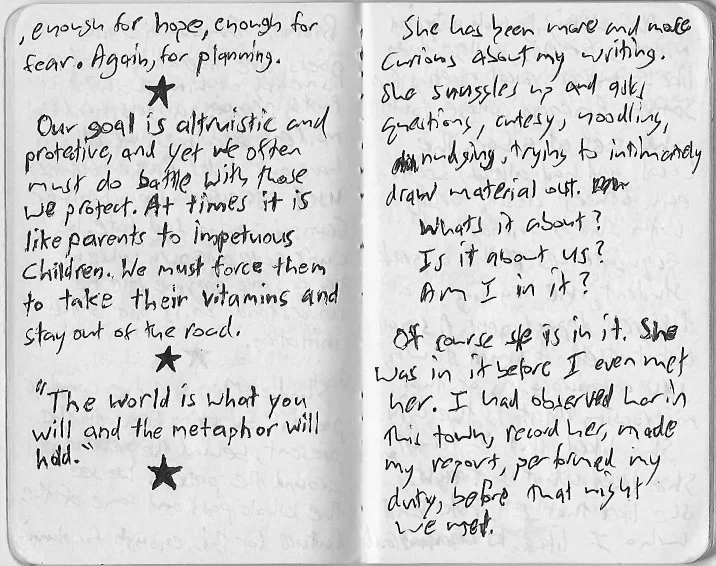 , enough for hope, enough for
fear. Again, for planning.
Our goal is altruistic and
protetive, and yet we often
must do battle with those
we protect. At times it is
like parents to impetuous
Children. We must force them
to take their vitamins and
stay out of the road.
"The world is what you
will and the metaphor will
hold."
She has been more and more
curious about my writing.
She snuggles up and asks
questions, cutesy, noodling,
nudging, trying to intimately
draw material out.
Whats it about?
Is it about us?
Am I in it?
Of course she is in it. She
was in it before I even met
her. I had observed her in
this town, record her, made
my report, performed my
duty, before that night
we met.